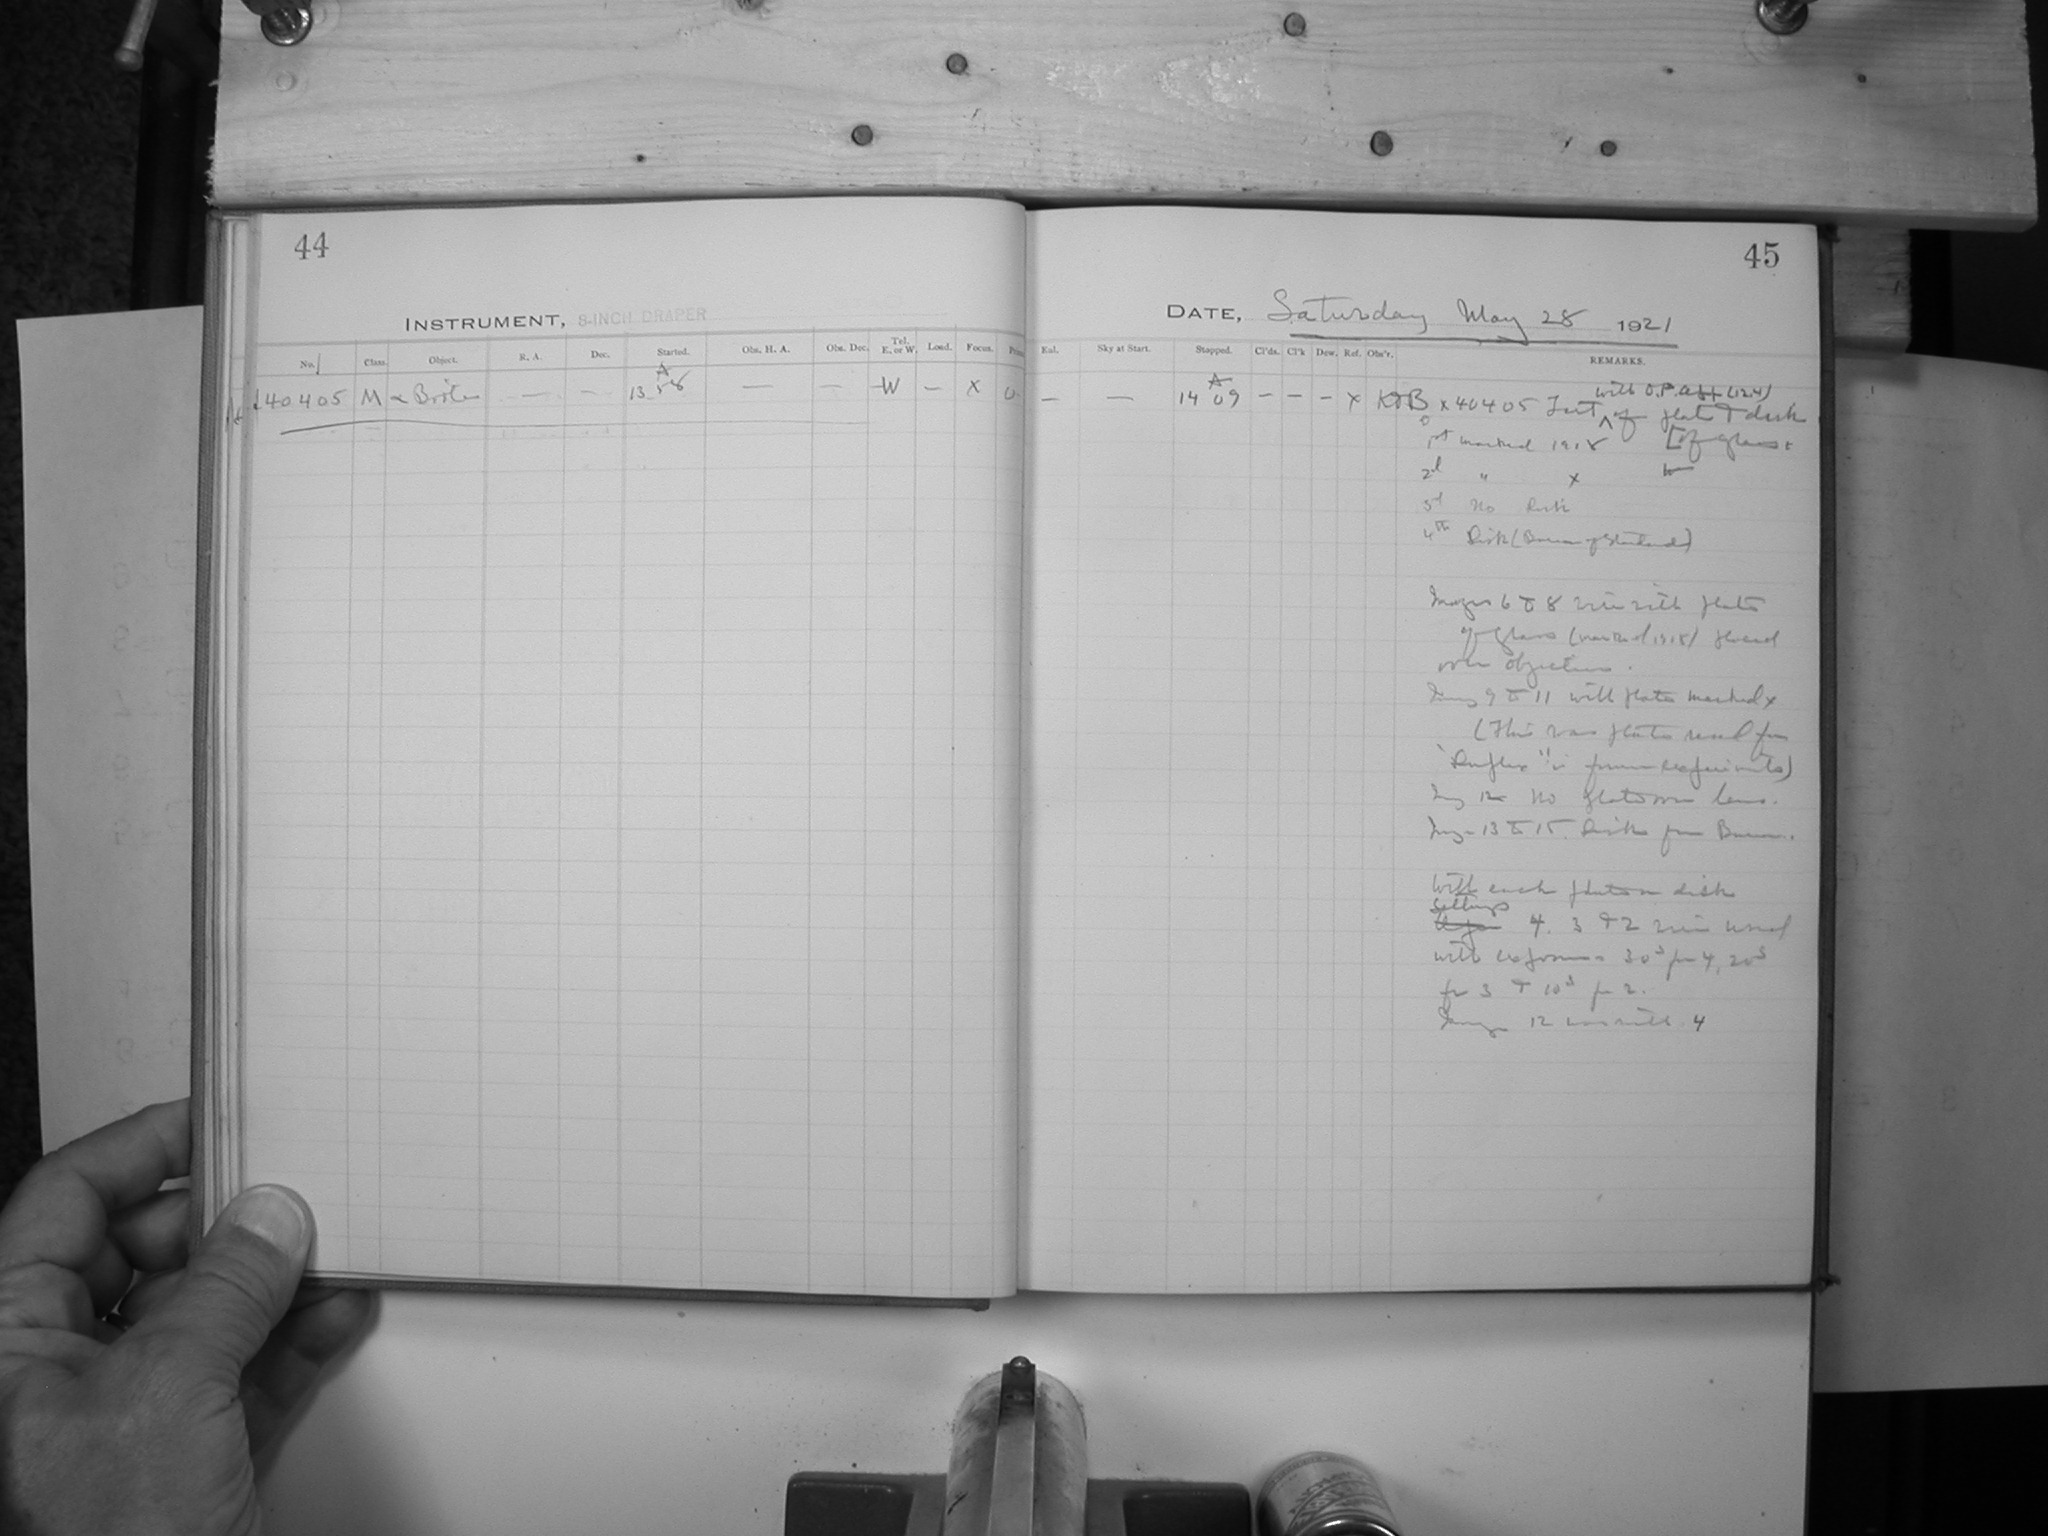 44
INSTRUMENT, 8-INCH DRAPER
No. Class. Object. R. A. Dec. Started. Obs. H. A. Obs. Dec. Tel. E. or W. Load. Focus.
40405 M α — — A 13 58 — — W — x
45
DATE, Saturday May 28 1921
Eul. Sky at Start. Stopped. Cl'ds. Cl'k Dew. Ref. Obs'r. REMARKS.
— — A 14 09 — — — x x 40405 Test of with O.P. (124)
1st marked 1918 [of glass
2d " x
3d No Disk
4th Disk (Bureau of Standard)
6 to 8 with plate
of glass (marked 1918) placed
over objective.
9 to 11 with plate marked x
(This was plate used for
in former experiments)
12 No plate over lens.
13 to 15. Disk from Bureau.
With each plate or disk
settings 4. 3 + 2 were used
with exposures 30s for 4, 20s
for 3 + 10s for 2.
Image 12 was with 4